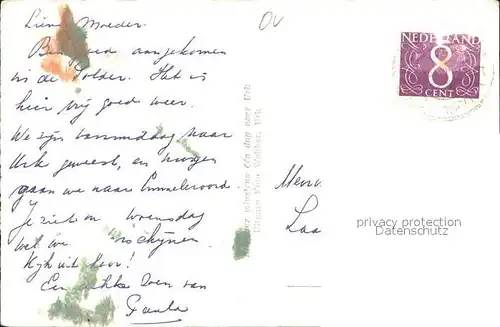 Lieve Moeder.
OV
B goed aangekomen
in de Polder. Het is
hier vrij goed weer.
We zijn vanmiddag naar
Urk geweest, en morgen
gaan we naar Emmeloord.
Je ziet Woensdag
wel we verschijnen.
Kijk uit hoor!
Een dikke Zoen van
Paula
NEDERLAND
8
CENT
minstens één dag naar Urk
Urk
Mevr.
Laa
privacy protection
Datenschutz